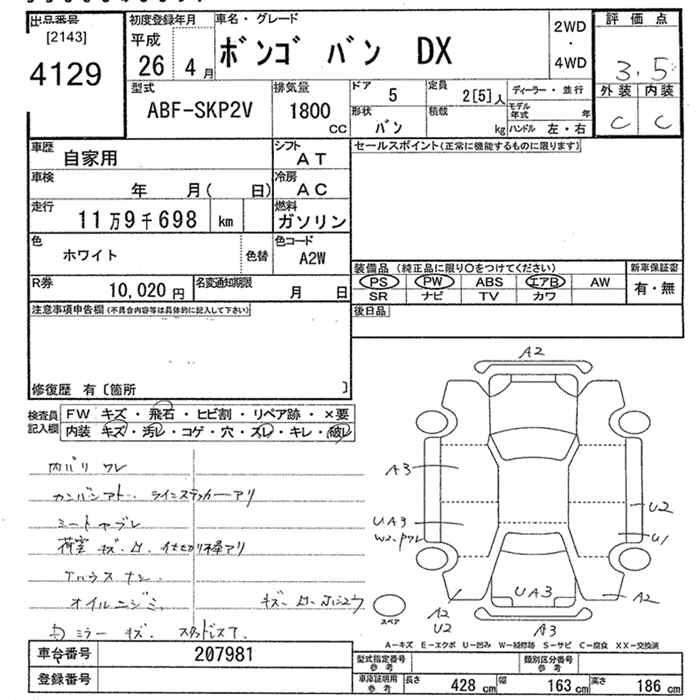 出品番号
[2143]
4129
初度登録年月
平成
26 4月
車名・グレード
ボンゴ バン DX
2WD
・
4WD
評価点
3.5
外装 内装
C C
型式
ABF-SKP2V
排気量
1800
cc
ドア
5
定員
2[5]人
ディーラー・並行
形状
バン
積載
kg
モデル年式 年
ハンドル 左・右
車歴
自家用
シフト
AT
セールスポイント(正常に機能するものに限ります)
車検
年 月( 日)
冷房
AC
走行
11万9千698 km
燃料
ガソリン
色
ホワイト
色替
色コード
A2W
装備品 (純正品に限り○をつけてください)
新車保証書
PS PW ABS エアB AW
有・無
SR ナビ TV カワ
R券
10,020円
名変通知期限
月 日
後日品
注意事項申告欄(不具合内容等は具体的に記入して下さい)
修復歴 有〔箇所 〕
検査員
記入欄
FW キズ・飛石・ヒビ割・リペア跡・×要
内装 キズ・汚レ・コゲ・穴・スレ・キレ・破レ
内バリ ワレ
カンバンアト・ラインステッカーアリ
シートヤブレ
オイルニジミ
ミラー キズ
A2
A3
UA3
U2
U1
UA3
A2
U2
A2
A3
スペア
A-キズ E-エクボ U-凹み W-補修跡 S-サビ C-腐食 XX-交換済
車台番号
207981
型式指定番号
参考
類別区分番号
参考
登録番号
車庫証明用
参考
長さ
428 cm
幅
163 cm
高さ
186 cm